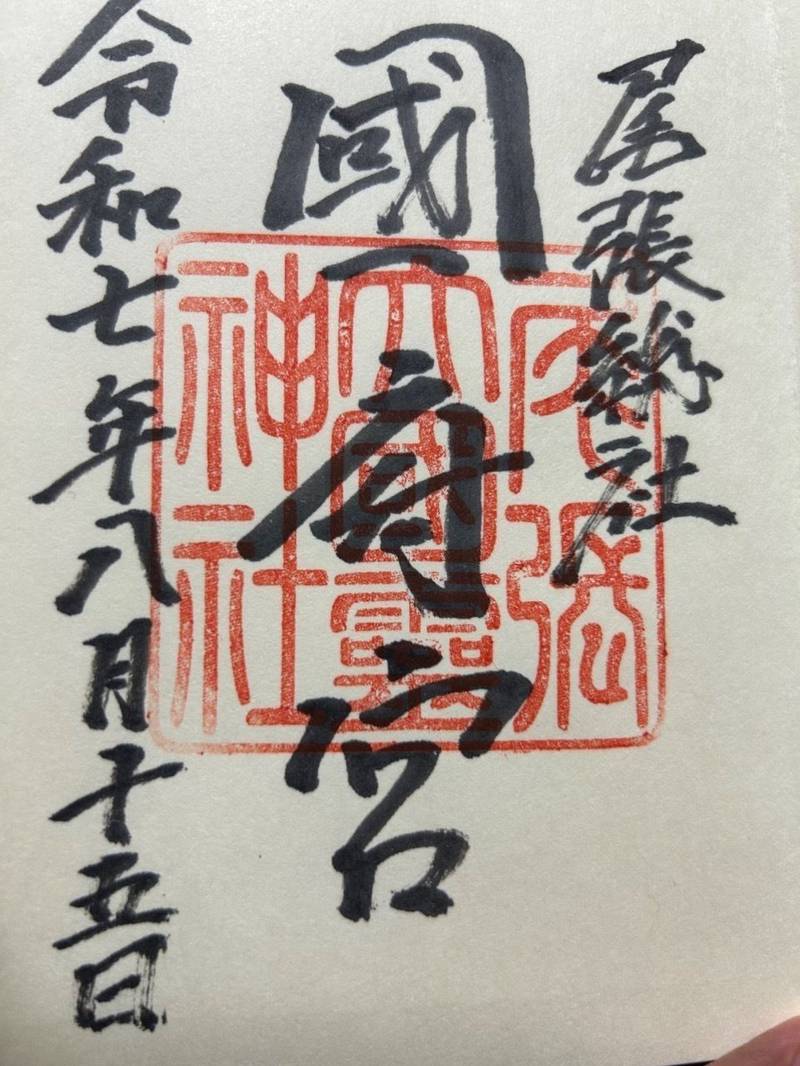 尾張総社
國府宮
令和七年八月十五日
尾張
大國靈
神社